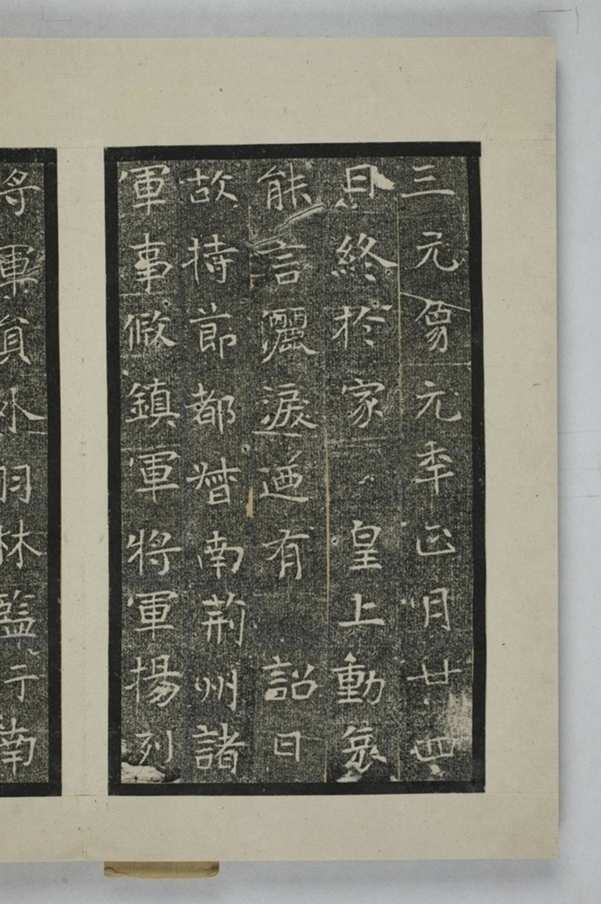 三元象元年正月廿四
日終於家　皇上動哀
能言灑淚迺有　詔曰
故持節都督南荊州諸
軍事假鎮軍將軍揚列
將軍員外羽林監行南